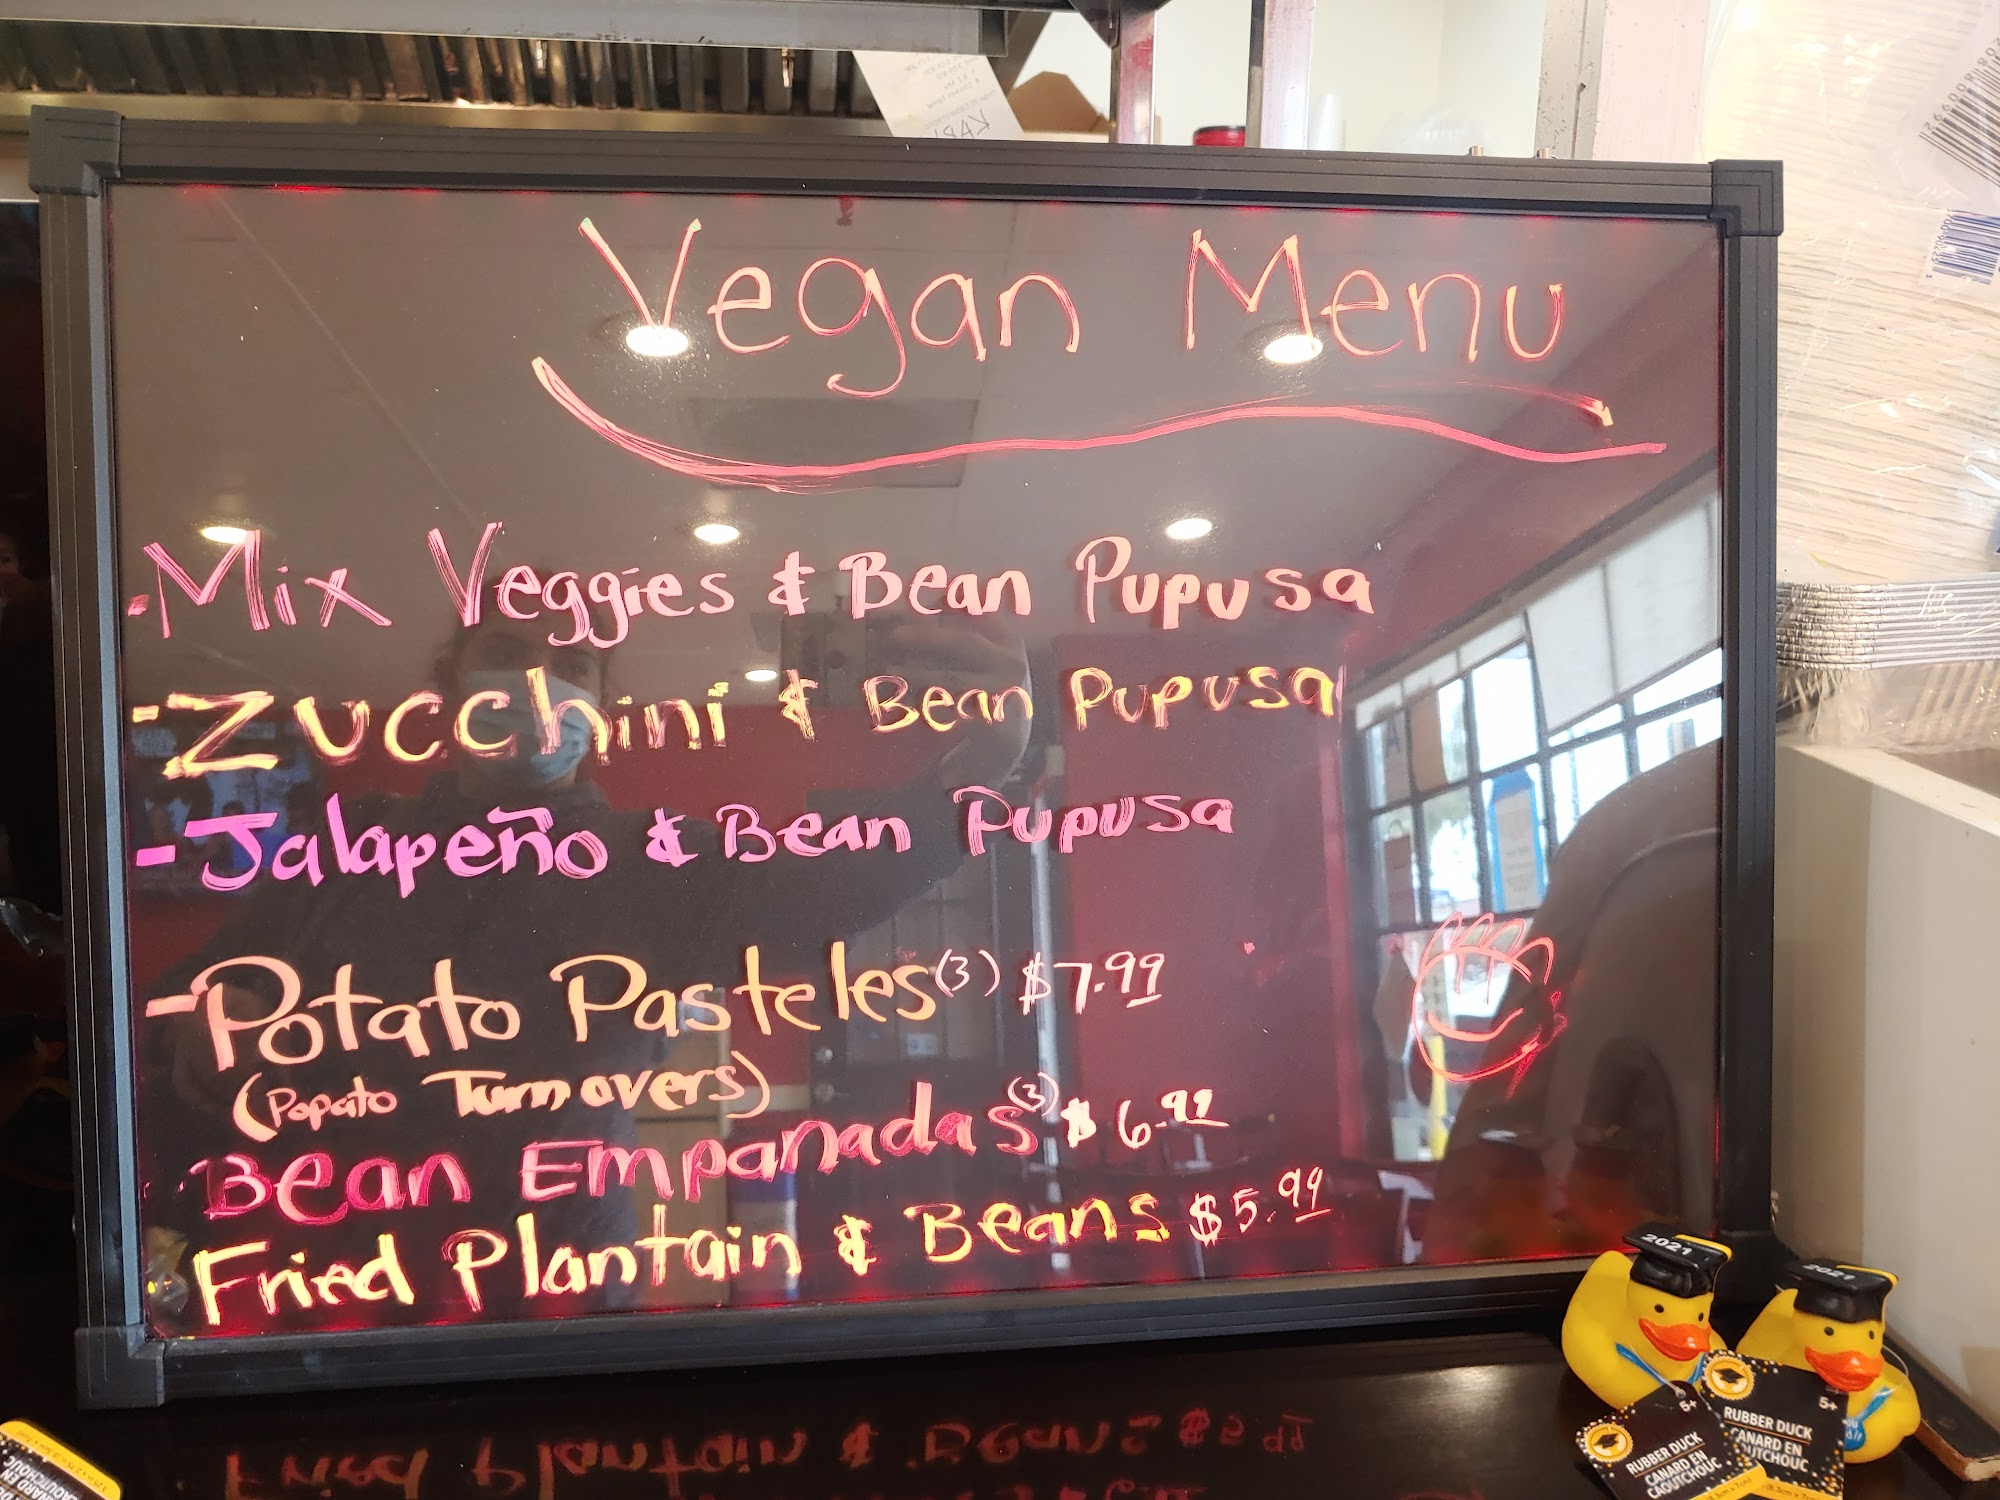 Vegan Menu
-Mix Veggies & Bean Pupusa
-Zucchini & Bean Pupusa
-Jalapeño & Bean Pupusa
-Potato Pasteles (3) $7.99
(Popato Turnovers)
Bean Empanadas (3) $6.99
Fried Plantain & Beans $5.99
2021
2021
5+
RUBBER DUCK
CANARD EN
CAOUTCHOUC
5+
RUBBER DUCK
CANARD EN
CAOUTCHOUC